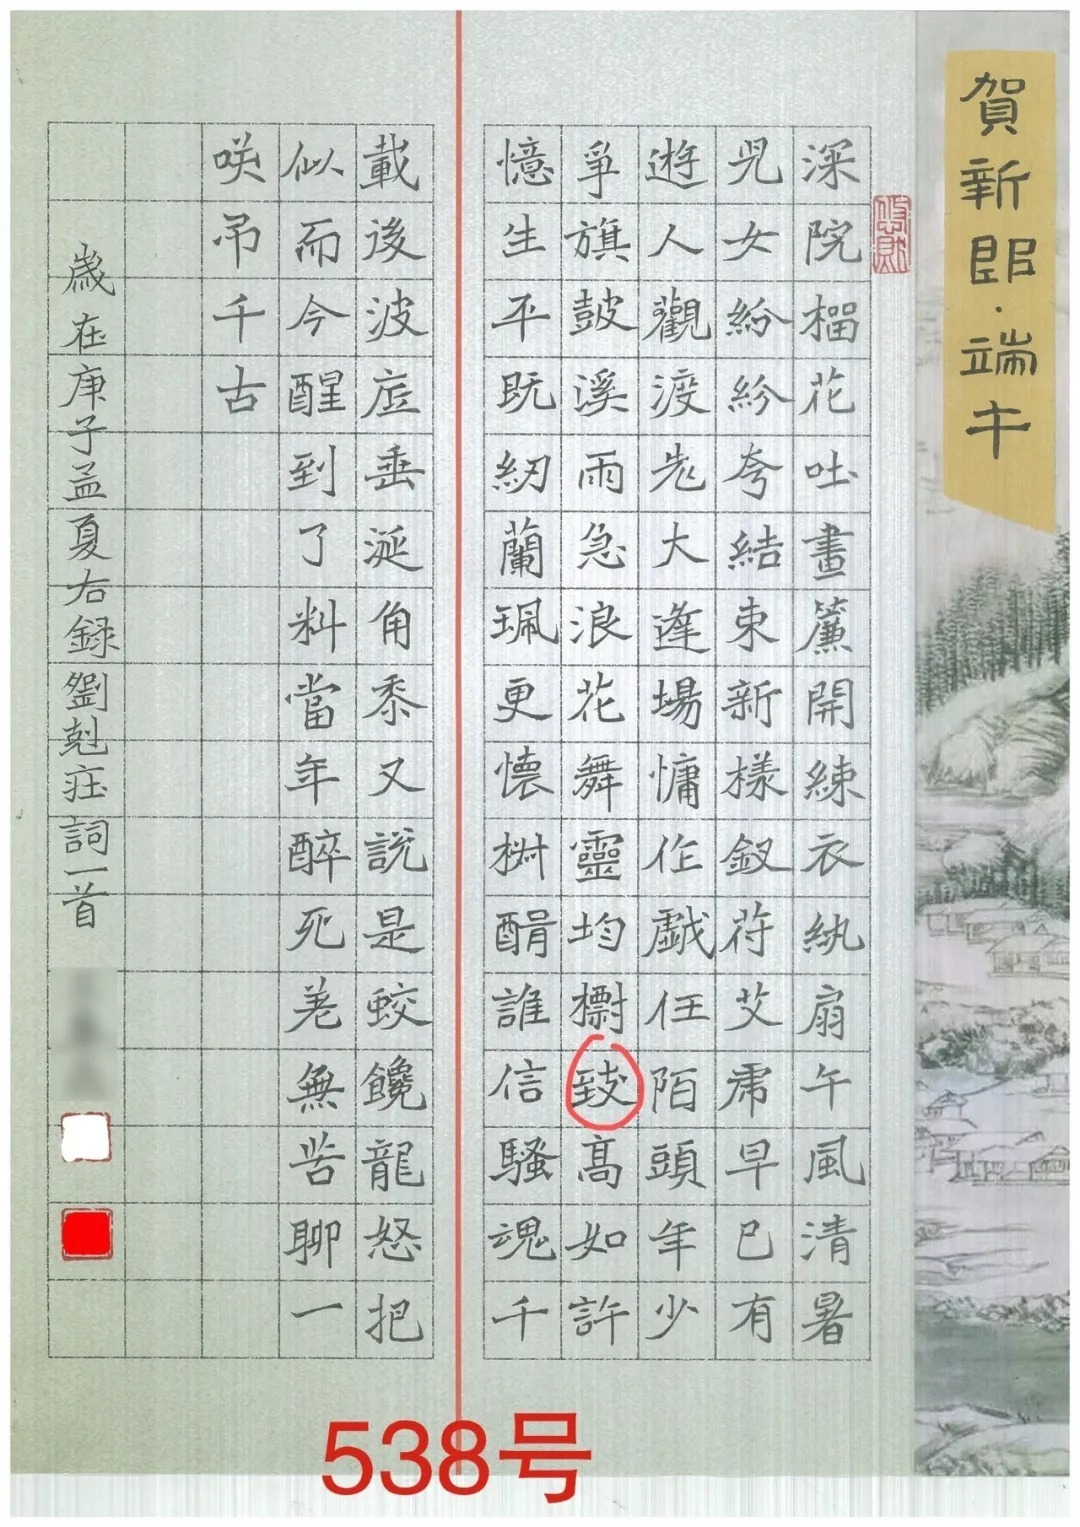 賀新郎·端午
深院榴花吐畫簾開練衣紈扇午風清暑
兒女紛紛夸結束新樣釵苻艾虎早已有
遊人觀渡老大逢場慵作戲任陌頭年少
爭旗鼓溪雨急浪花舞靈均標致高如許
憶生平既紉蘭珮更懷椒醑誰信騷魂千
載後波底垂涎角黍又說是蛟饞龍怒把
似而今醒到了料當年醉死差無苦聊一
咲吊千古
歲在庚子孟夏右録劉剋莊詞一首
538号